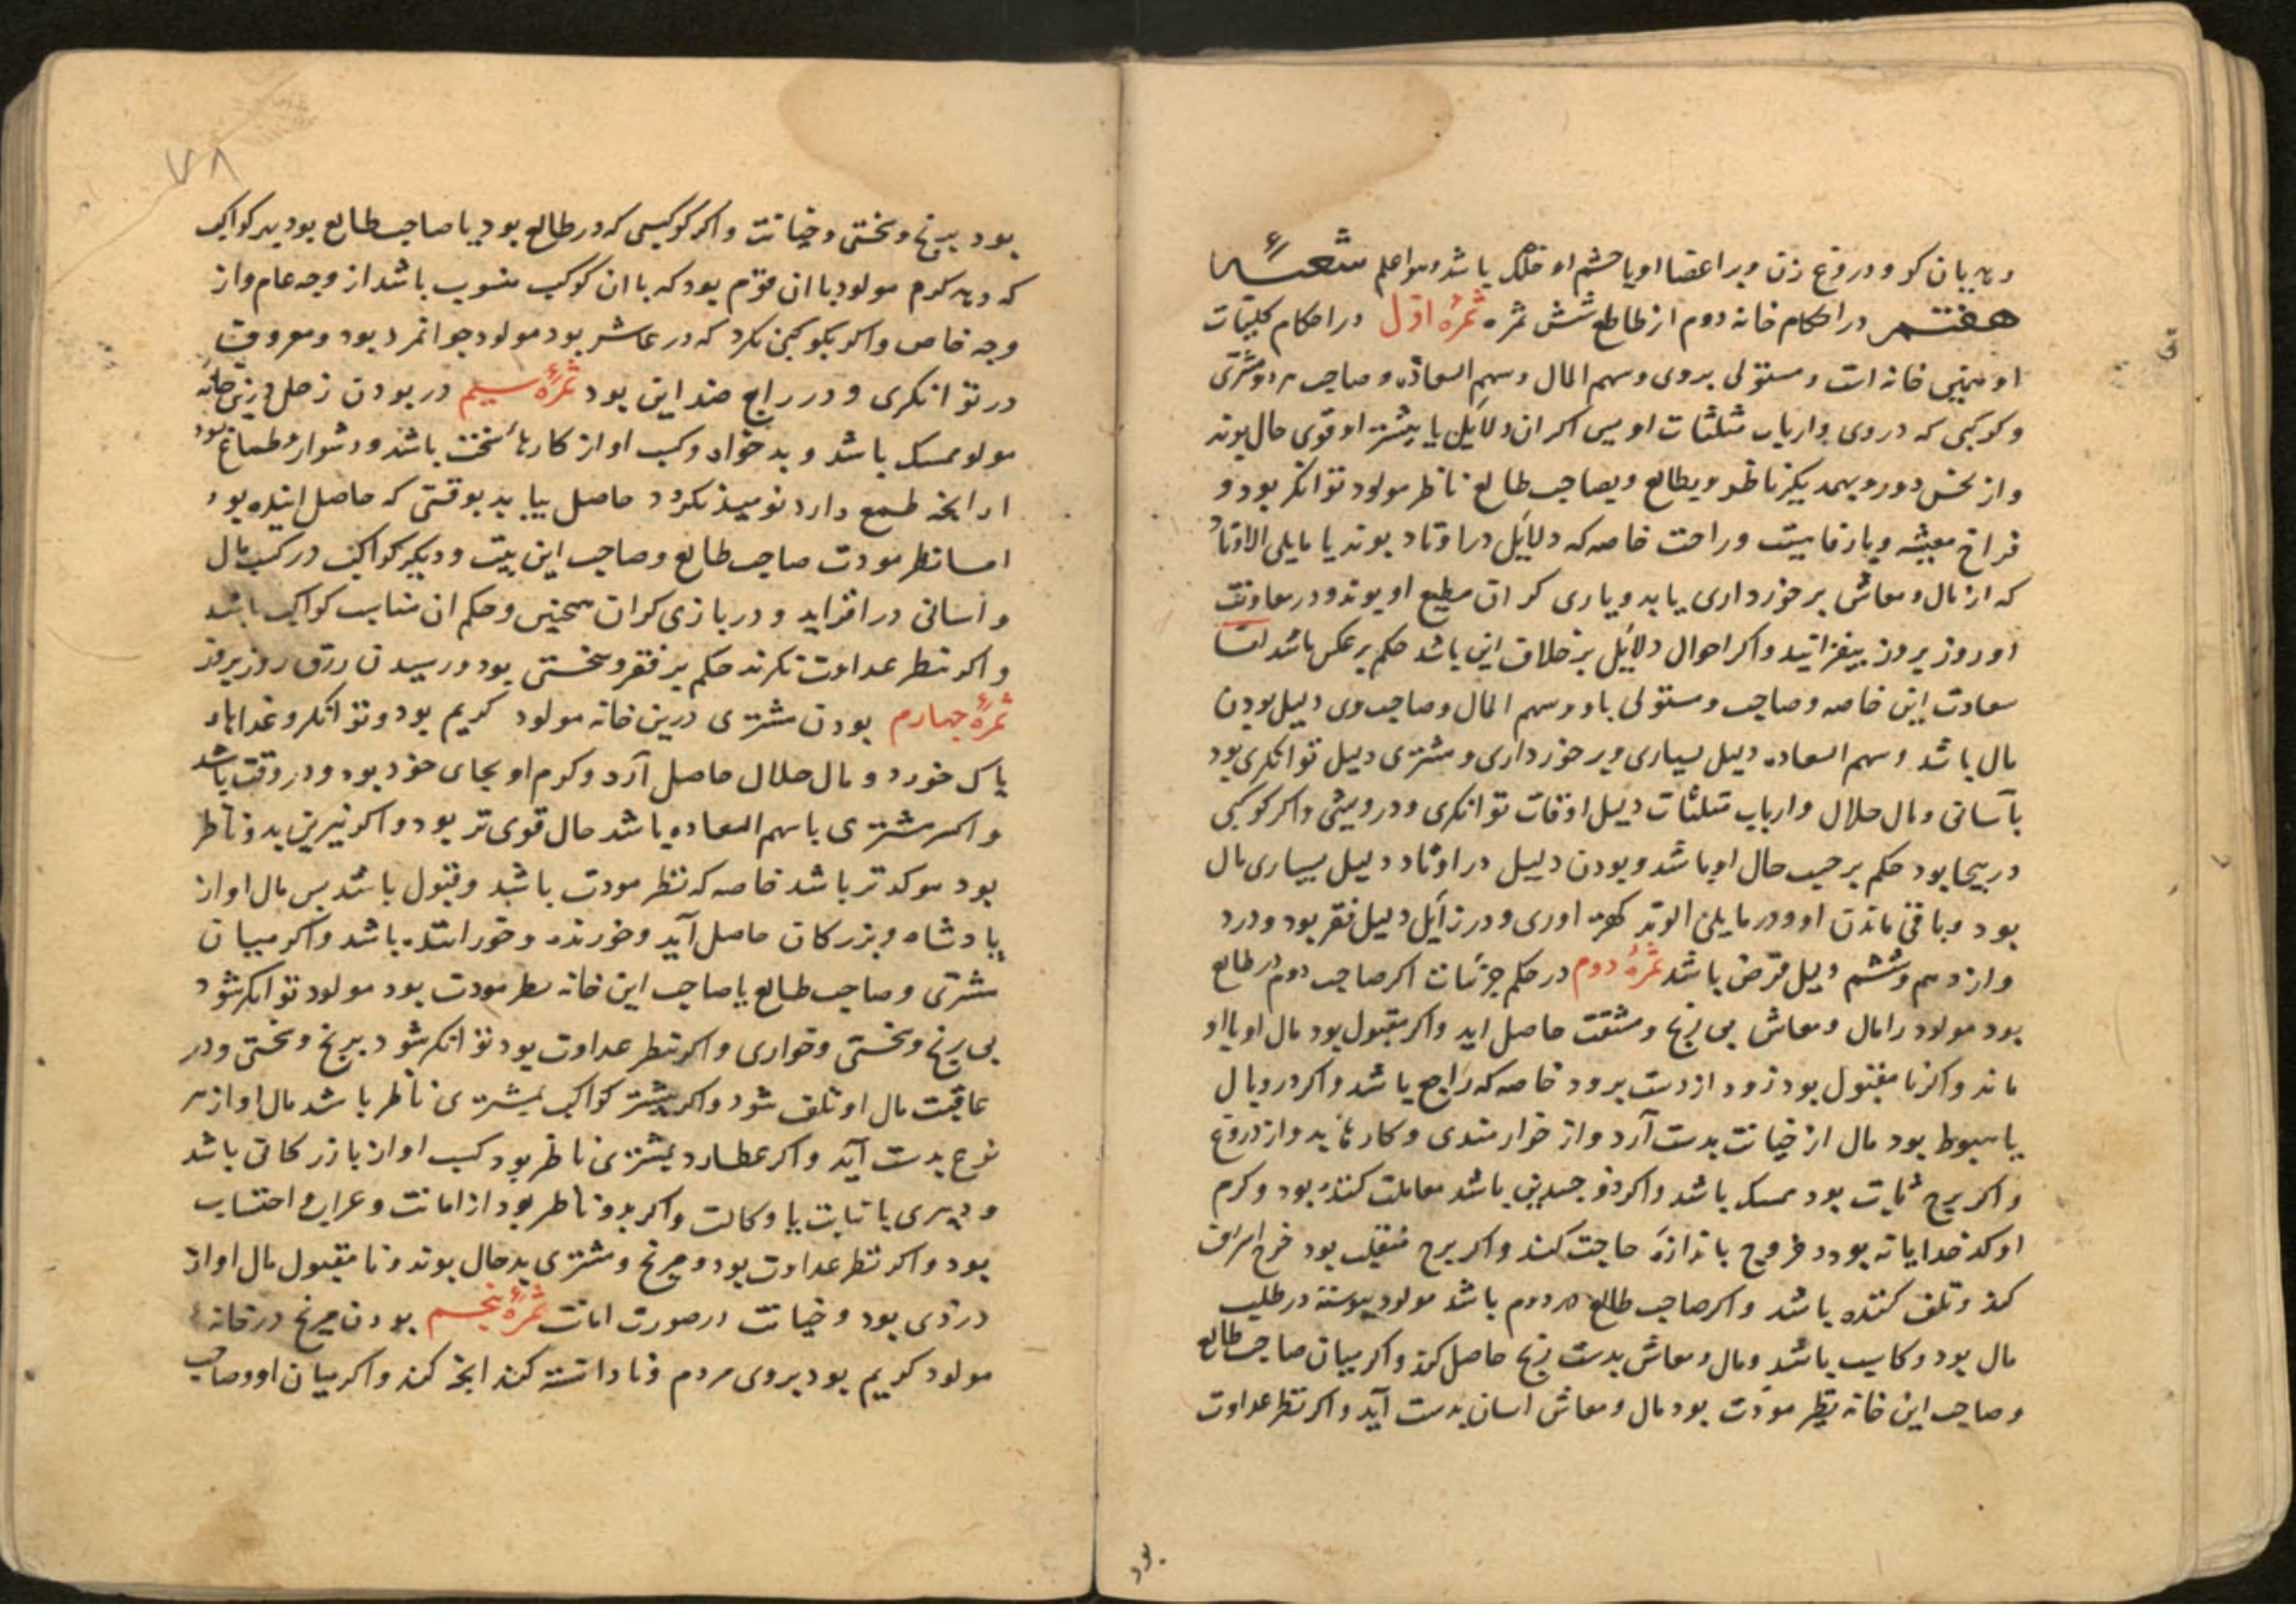 و در اعضا او یا چشم او خلل باشد واعلم شعبهٔ
هفتم در احکام خانه دوم از طالع شش ثمره ثمرهٔ اول در احکام کلیّات
او مبنی خانه است و مستولی بروی و سهم المال و سهم السعاده و صاحب هر دو و مشتری
و کوکبی که در وی و ارباب مثلثات او پس اکر ان دلائل یا بیشتر او قوی حال بوند
و از نحس دور و بهمدیکر ناظر و بطالع و بصاحب طالع ناظر مولود توانکر بود و
فراخ معیشه و با رفاهیت و راحت خاصه که دلایل در اوتاد بوند یا مایلی الاوتاد
که از مال و معاش برخورداری یابد و یاری کران مطیع او بوند و در معاونت
او روز بروز بیفزایند و اکر احوال دلایل برخلاف این باشد حکم برعکس باشد اما
سعادت این خاصه و صاحب و مستولی باو و سهم المال و صاحب وی دلیل بودن
مال باشد و سهم السعاده دلیل بسیاری و برخورداری و مشتری دلیل توانکری بود
بآسانی و مال حلال و ارباب مثلثات دلیل اوقات توانکری و درویشی و اکر کوکبی
دریجا بود حکم برحسب حال او باشد و بودن دلیل در اوتاد دلیل بسیاری مال
بود و باقی ماندن او و در مایلی الوتد اوری و در زایل دلیل فقر بود و در
دوازدهم و ششم دلیل قرض باشد ثمرهٔ دوم در حکم جزئیات اکر صاحب دوم در طالع
بود مولود را مال و معاش بی رنج و مشقت حاصل اید و اکر مقبول بود مال او با او
ماند و اکر نا مقبول بود زود از دست برود خاصه که راجع باشد و اکر در وبال
یا هبوط بود مال از خیانت بدست آرد و از خوارمندی و کارها بد و از دروغ
و اکر برج ثابت بود ممسک باشد و اکر ذو جسدین باشد معاملت کننده بود و کرم
او کدخدایانه بود و خروج باندازهٔ حاجت کند و اکر برج منقلب بود خرج اسراف
کند و تلف کننده باشد و اکر صاحب طالع در دوم باشد مولود پیوسته در طلب
مال بود و کاسب باشد و مال و معاش بدست رنج حاصل کند و اکر میان صاحب طالع
و صاحب این خانه نظر مودّت بود مال و معاش اسان بدست آید و اکر نظر عداوت
بود
۷۸
بود برنج و سختی و خیانت و اکر کوکبی که در طالع بود یا صاحب طالع بود بر کواکب
که دهد کرم مولود با ان قوم بود که با ان کوکب منسوب باشد از وجه عام و از
وجه خاص و اکر بکوکبی نکرد که در عاشر بود مولود جوانمرد بود و معروف
در توانکری و در رابع ضد این بود ثمرهٔ سیم در بودن زحل درین خانه
مولود ممسک باشد و بدخواه و کسب او از کارهاء سخت باشد و دشوار و طماع بود
از انجه طمع دارد نومید نکردد حاصل بیابد بوقتی که حاصل اینده بود
اما نظر مودت صاحب طالع و صاحب این بیت و دیکر کواکب در کسب مال
و اسانی در افزاید و در بازی کران همجنین و حکم ان مناسب کواکب باشد
و اکر بنظر عداوت نکرند حکم بر فقر و سختی بود و رسیدن رزق روز بروز
ثمرهٔ جهارم بودن مشتری درین خانه مولود کریم بود و توانکر و غذاهاء
پاک خورد و مال حلال حاصل آرد و کرم او بجای خود بود و در وقت باشد
و اکر مشتری با سهم السعاده باشد حال قوی تر بود و اکر نیرین بدو ناظر
بود موکدتر باشد خاصه که نظر مودت باشد و قبول باشد پس مال او از
پادشاه و بزرکان حاصل آید و خورنده و خوراننده باشد و اکر میان
مشتری و صاحب طالع یا صاحب این خانه نظر مودت بود مولود توانکر شود
بی رنج و سختی و خواری و اکر نظر عداوت بود توانکر شود برنج و سختی و در
عاقبت مال او تلف شود و اکر بیشتر کواکب بمشتری ناظر باشد مال او از هر
نوع بدست آید و اکر عطارد بمشتری ناظر بود کسب او از بازرکانی باشد
و دبیری یا نیابت یا وکالت و اکر بدو ناظر بود از امانت و احتساب
بود و اکر نظر عداوت بود و مریخ و مشتری بد حال بوند و نا مقبول مال او از
دزدی بود و خیانت در صورت امانت ثمرهٔ پنجم بودن مریخ در خانه
مولود کریم بود بروی مردم و نا دانسته کند انجه کند و اکر میان او و صاحب